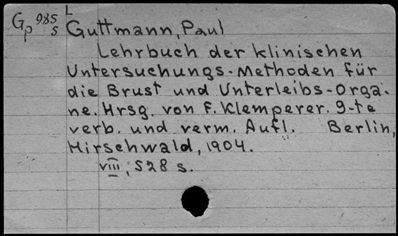 L
Gp 985 s
Guttmann, Paul
Lehrbuch der klinischen
Untersuchungs-Methoden für
die Brust und Unterleibs-Orga-
ne. Hrsg. von F. Klemperer. 9-te
verb. und verm. Aufl. Berlin,
Hirschwald, 1904.
VIII; 528 s.